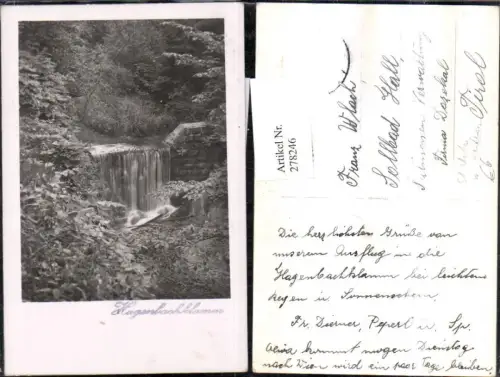 Hagenbachklamm
Artikel Nr.
278246
Franz Wlach
Solbad Hall,
Firma
Tirol
Die herzlichsten Grüße von
unserem Ausflug in die
Hagenbachklamm bei leichtem
Regen u. Sonnenschein.
Fr. Pepert u. Sp.
kommt morgen Dienstag
nach Wien wird ein paar Tage bleiben.